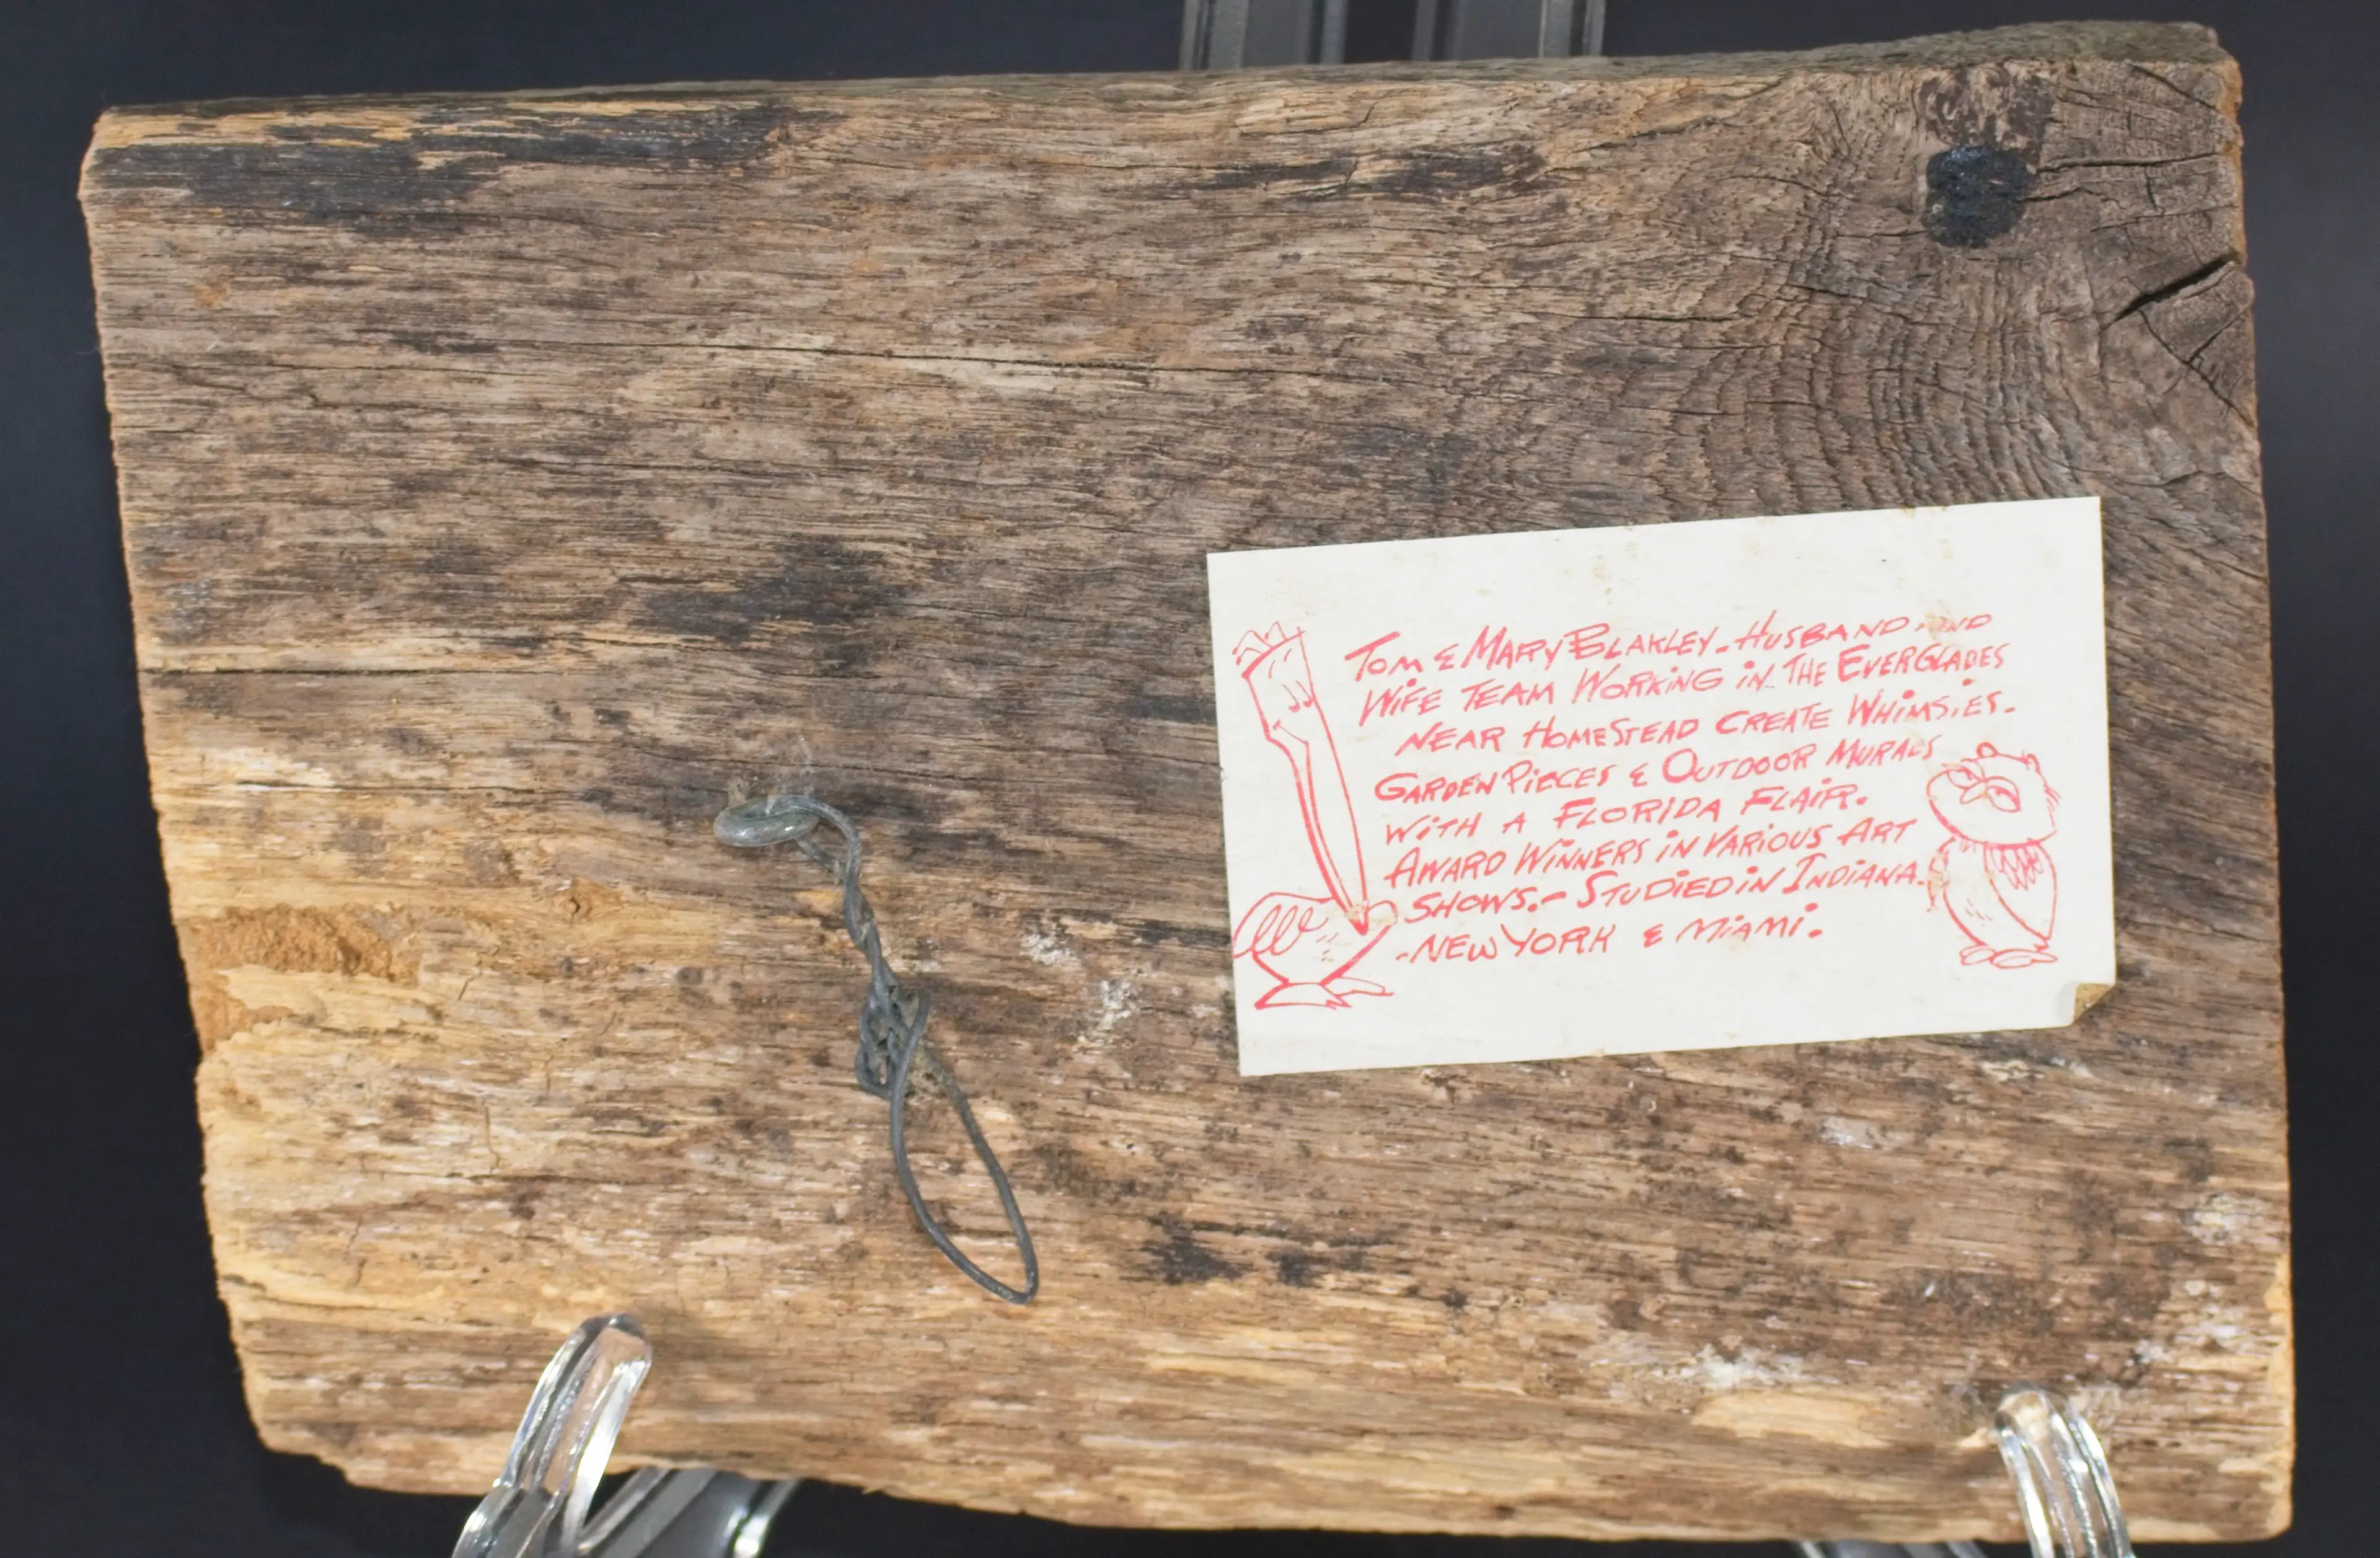 Tom & Mary Blakley - Husband and
Wife Team Working in the Everglades
near Homestead create Whimsies.
Garden Pieces & Outdoor Murals
with a Florida Flair.
Award Winners in Various Art
Shows. - Studied in Indiana.
- New York & Miami.